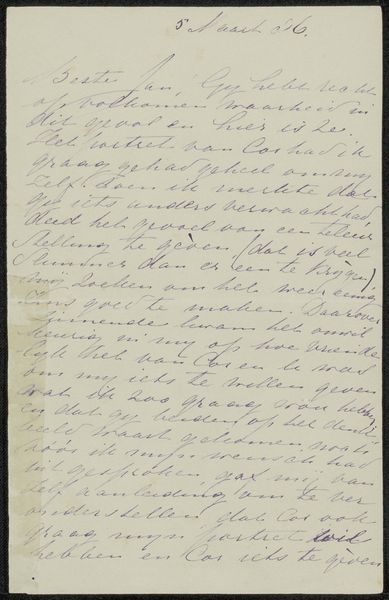 5 Maart 86.
Beste Jan, Gij hebt recht
op volkomen waarheid in
dit geval en hier is ze.
Het portret van Cor had ik
graag gehad geheel om my
zelf. Toen ik merkte dat
ge iets anders verwacht had,
deed het gevoel van een teleur
stelling te geven (dat is veel
slimmer dan er een te krijgen)
mij zoeken om het weer eenig
zins goed te maken. Daarover
zinnende kwam het onwil
keurig in my op hoe vriende
lijk het van Cor en U was
om my iets te willen geven
wat ik zoo graag wou hebben
en dat gij beiden op het denk
beeld waart gekomen nog
vóór ik mijn wensch had
uit gesproken, gaf mij van
zelf aanleiding om te ver
onderstellen dat Cor ook
graag mijn portret
hebben en Cor iets te geven